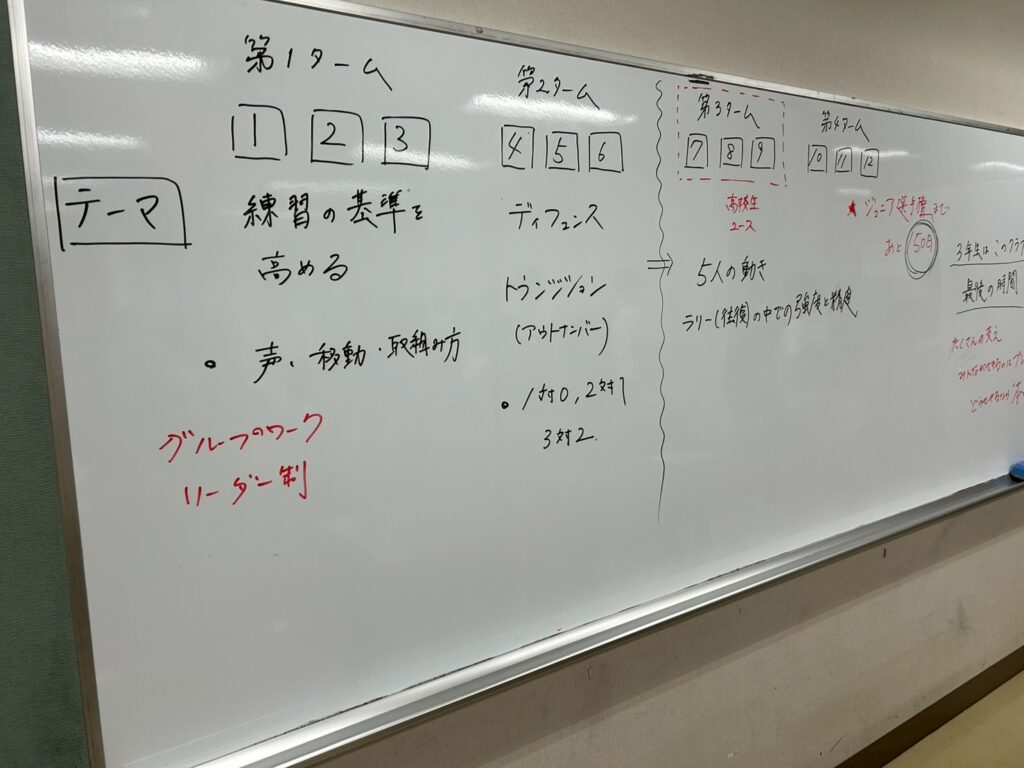 第1ターム
1 2 3
テーマ
練習の基準を
高める
• 声、移動・取組み方
グループワーク
リーダー制
第2ターム
4 5 6
ディフェンス
トランジション
(アウトナンバー)
• 1対0, 2対1
3対2.
第3ターム
7 8 9
高校生
ユース
⇒ 5人の動き
ラリー(往復)の中での強度と精度
第4ターム
10 11 12
★ ジュニア選手権まで
あと 50日
3年生はこのクラブ
最後の時間
たくさんの支え